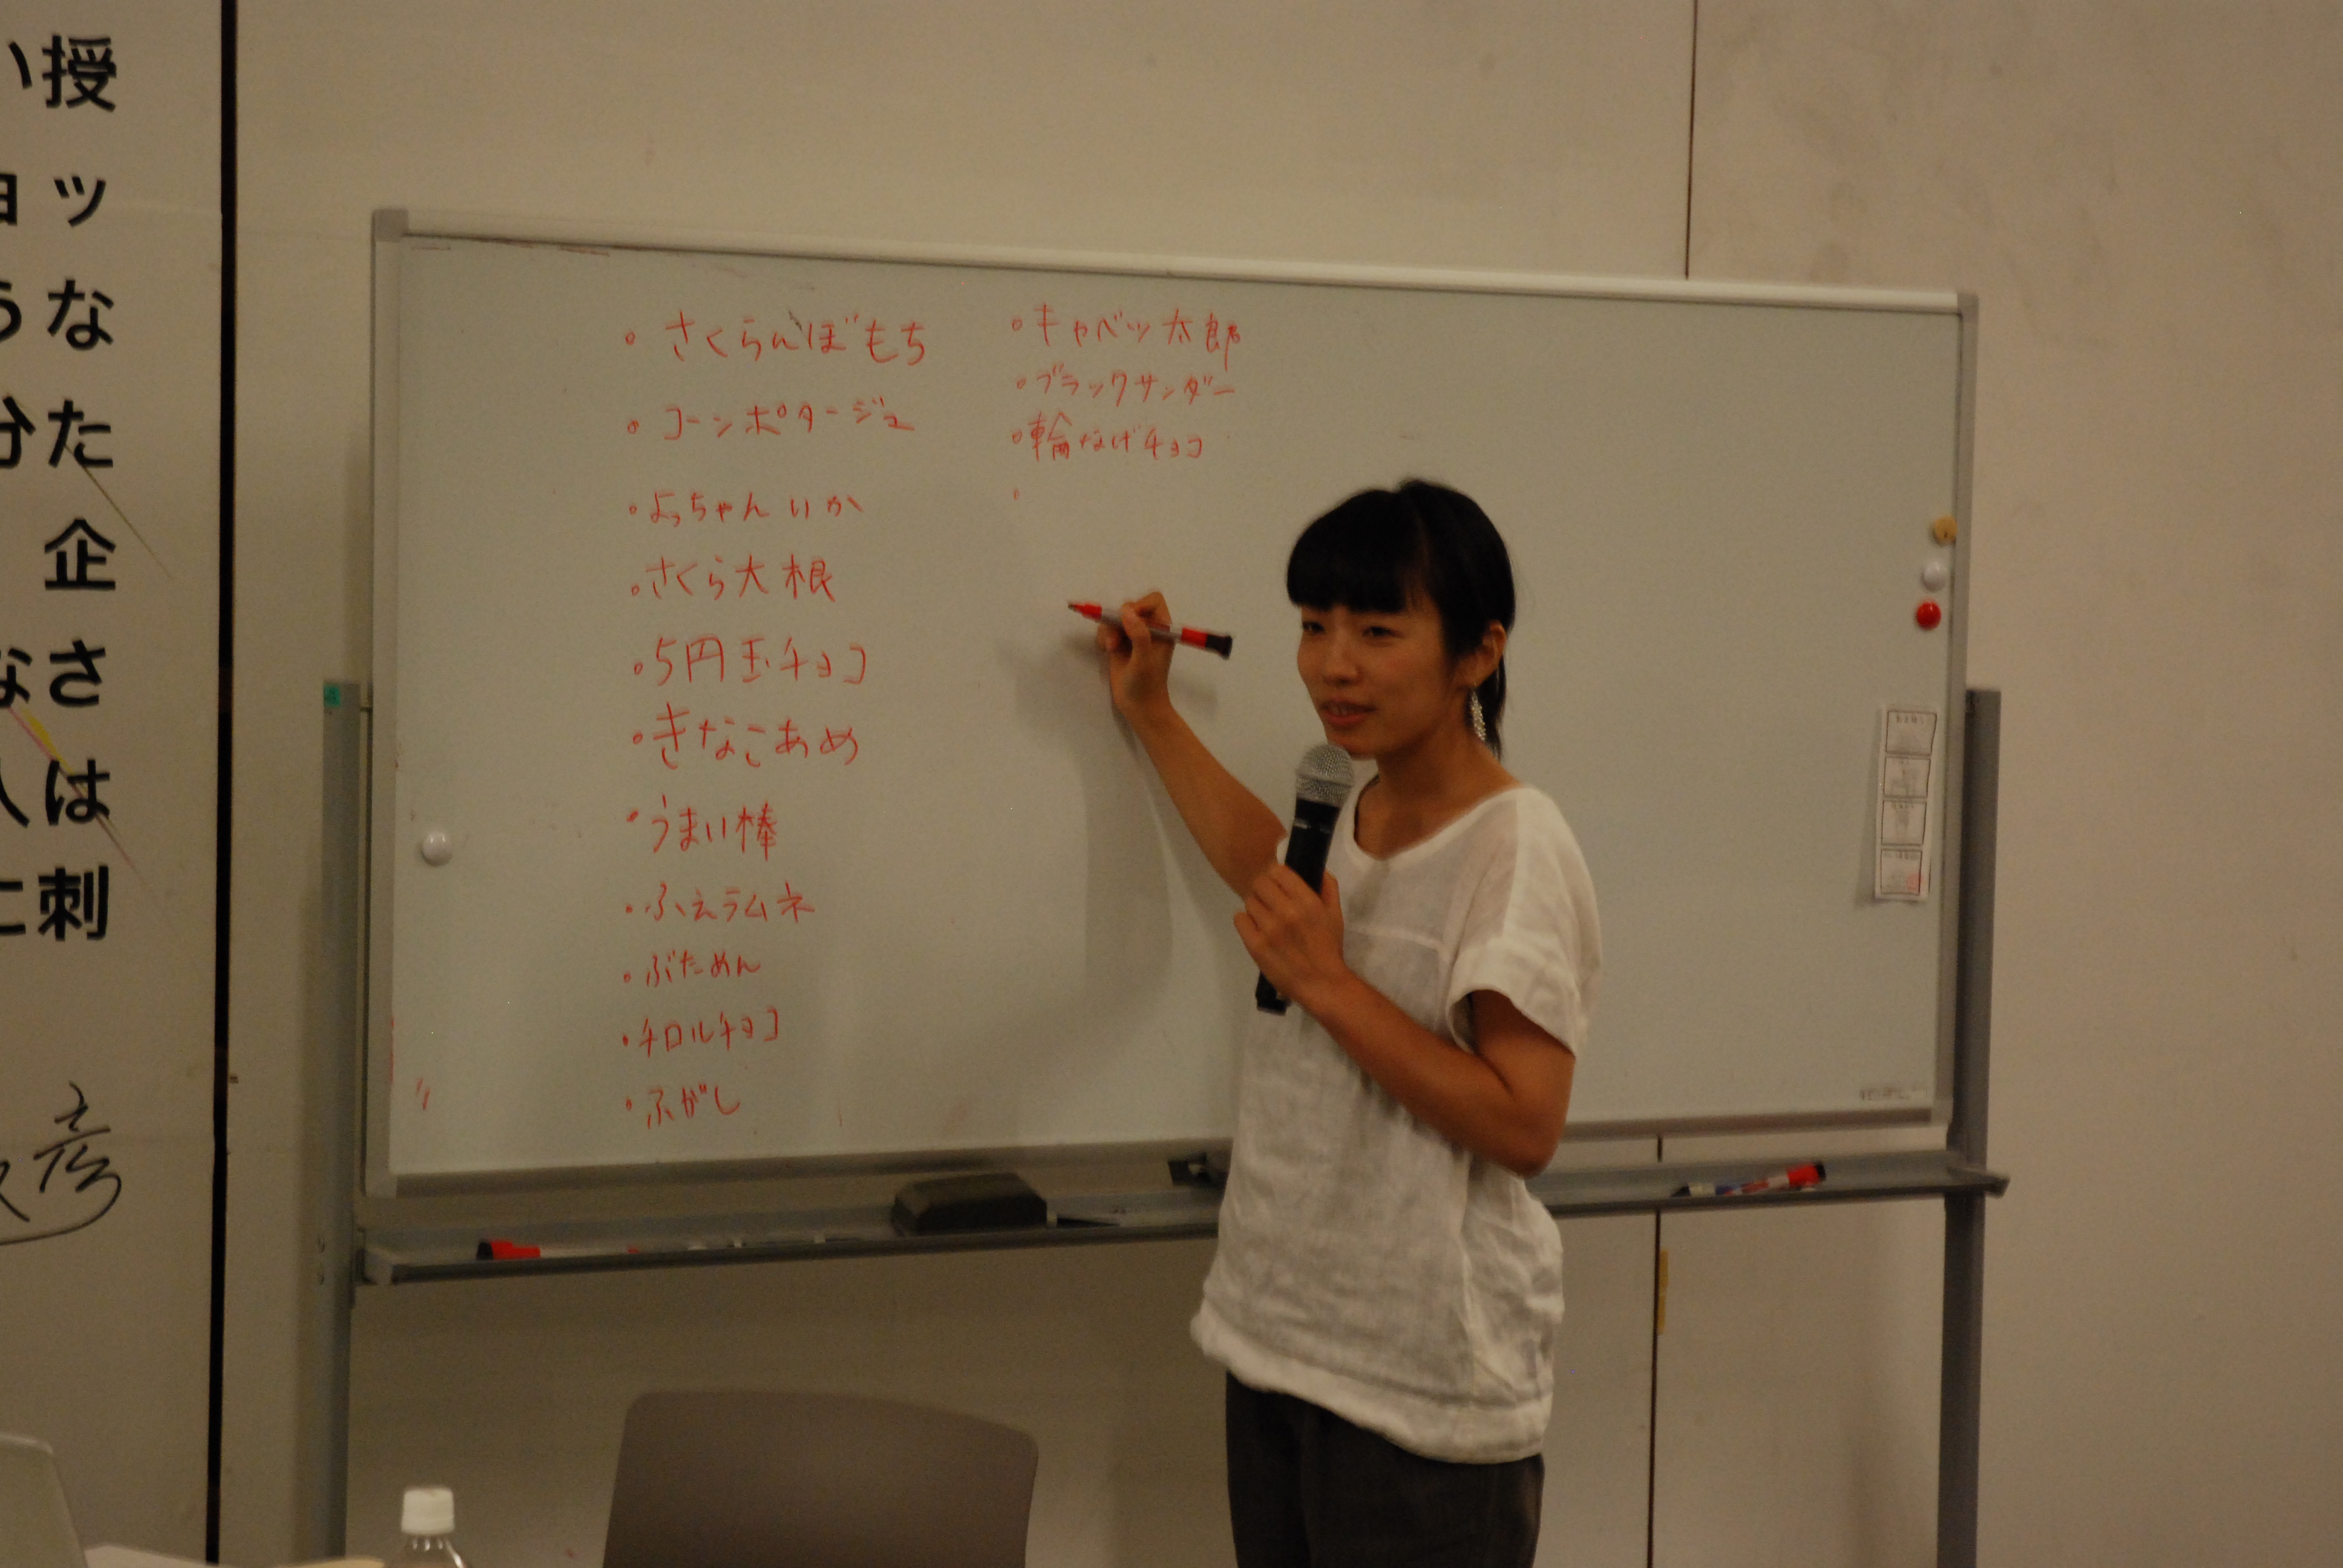 い授
ョッ
うな
分た
企
なさ
人は
に刺
・さくらんぼもち
・コーンポタージュ
・よっちゃんいか
・さくら大根
・5円玉チョコ
・きなこあめ
・うまい棒
・ふえラムネ
・ぶためん
・チロルチョコ
・ふがし
・キャベツ太郎
・ブラックサンダー
・輪なげチョコ
・